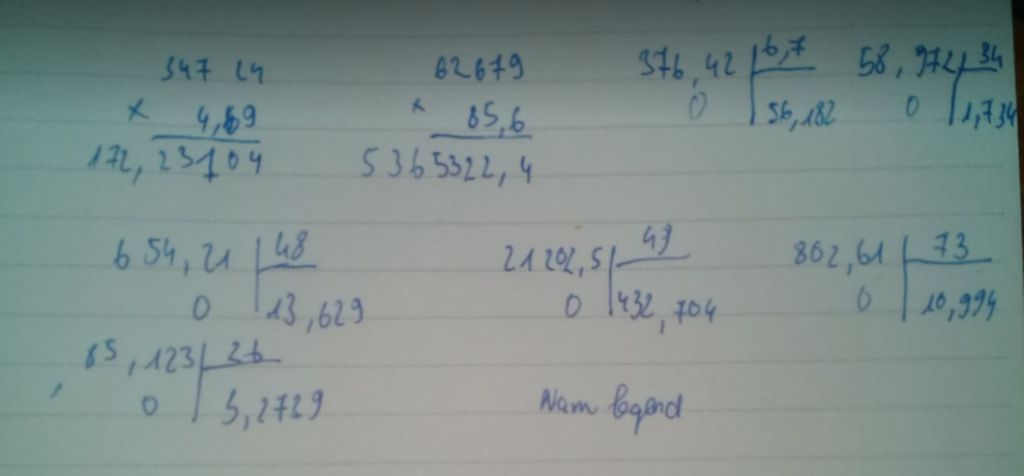 347 24 62679 376,42 6,7 58,972 34
× 4,69 × 85,6 0 56,182 0 1,734
172,23104 5365322,4
654,21 48 21202,5 49 802,61 73
0 13,629 0 432,704 0 10,994
85,123 26
0 3,2739 Nam legend